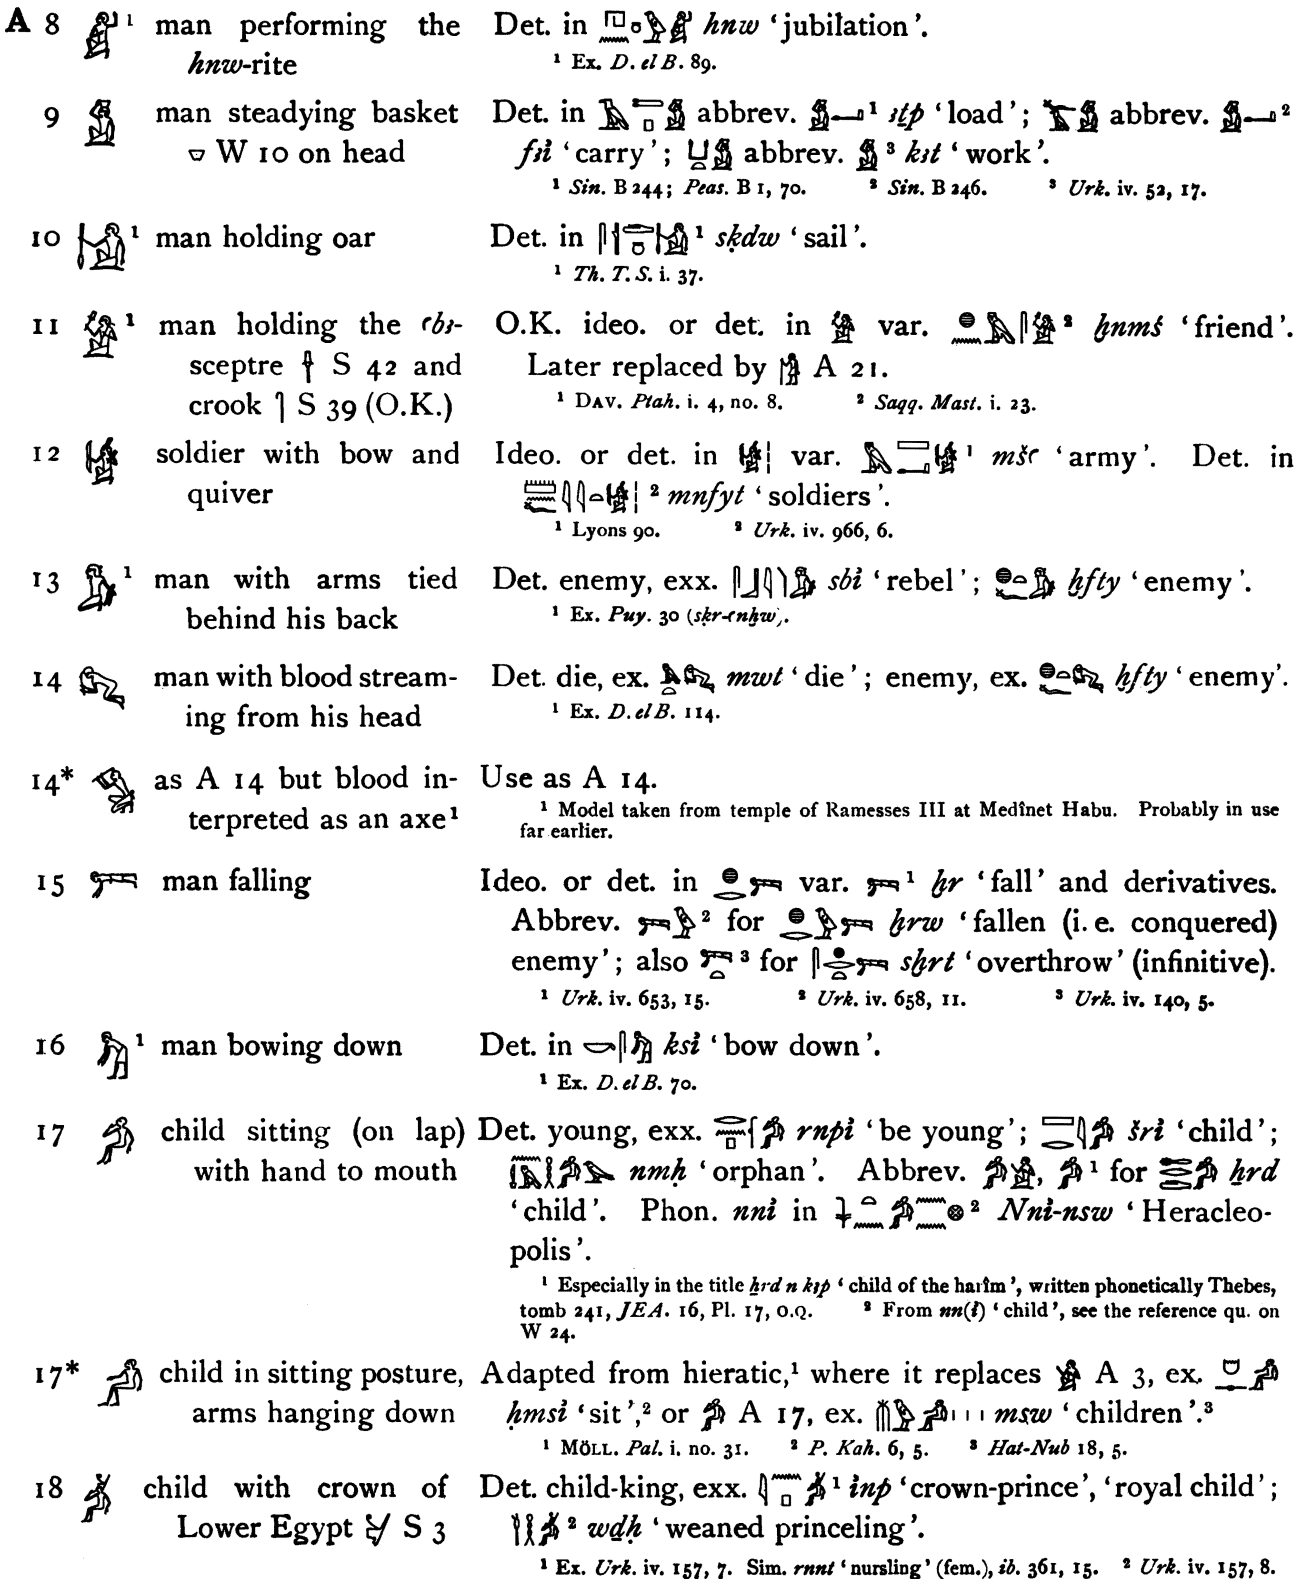 A 8 𓀊¹ man performing the
hnw-rite
Det. in 𓉔𓈖𓏌𓅱𓀊 hnw ‘jubilation’.
¹ Ex. D. el B. 89.
9 𓀋 man steadying basket
𓎺 W 10 on head
Det. in 𓄿𓍿𓊪𓀋 abbrev. 𓀋𓂝¹ ꜣṯp ‘load’; 𓆑𓄿𓀋 abbrev. 𓀋𓂝²
fꜣỉ ‘carry’; 𓂓𓏏𓀋 abbrev. 𓀋³ kꜣt ‘work’.
¹ Sin. B 244; Peas. B 1, 70. ² Sin. B 246. ³ Urk. iv. 52, 17.
10 𓀌¹ man holding oar
Det. in 𓋴𓐪𓂧𓏌𓀌¹ sḳdw ‘sail’.
¹ Th. T. S. i. 37.
11 𓀍¹ man holding the ꜥbꜣ-
sceptre 𓌂 S 42 and
crook 𓋿 S 39 (O.K.)
O.K. ideo. or det. in 𓀍 var. 𓐍𓈖𓅓𓋴𓀍² ḫnmś ‘friend’.
Later replaced by 𓀙 A 21.
¹ DAV. Ptah. i. 4, no. 8. ² Saqq. Mast. i. 23.
12 𓀎 soldier with bow and
quiver
Ideo. or det. in 𓀎𓏥 var. 𓅓𓈙𓂝𓀎¹ mšꜥ ‘army’. Det. in
𓏠𓈖𓆑𓇋𓇋𓏏𓀎𓏥² mnfyt ‘soldiers’.
¹ Lyons 90. ² Urk. iv. 966, 6.
13 𓀏¹ man with arms tied
behind his back
Det. enemy, exx. 𓋴𓃀𓇋𓌙𓀏 sbỉ ‘rebel’; 𓐍𓆑𓏏𓀏 ḫfty ‘enemy’.
¹ Ex. Puy. 30 (sḳr-ꜥnḫw).
14 𓀐 man with blood stream-
ing from his head
Det. die, ex. 𓅓𓏏𓀐 mwt ‘die’; enemy, ex. 𓐍𓆑𓏏𓀐 ḫfty ‘enemy’.
¹ Ex. D. el B. 114.
14* 𓀑 as A 14 but blood in-
terpreted as an axe¹
Use as A 14.
¹ Model taken from temple of Ramesses III at Medînet Habu. Probably in use
far earlier.
15 𓀒 man falling
Ideo. or det. in 𓐍𓂋𓀒 var. 𓀒¹ ḫr ‘fall’ and derivatives.
Abbrev. 𓀒𓅱² for 𓐍𓂋𓅱𓀒 ḫrw ‘fallen (i.e. conquered)
enemy’; also 𓀒𓏏³ for 𓋴𓐍𓂋𓏏𓀒 sḫrt ‘overthrow’ (infinitive).
¹ Urk. iv. 653, 15. ² Urk. iv. 658, 11. ³ Urk. iv. 140, 5.
16 𓀓¹ man bowing down
Det. in 𓎡𓋴𓀓 ksỉ ‘bow down’.
¹ Ex. D. el B. 70.
17 𓀔 child sitting (on lap)
with hand to mouth
Det. young, exx. 𓂋𓈖𓊪𓆳𓀔 rnpỉ ‘be young’; 𓈙𓂋𓇋𓀔 šrỉ ‘child’;
𓈖𓅓𓎛𓀔𓅪 nmḥ ‘orphan’. Abbrev. 𓀔𓀀, 𓀔¹ for 𓄡𓂋𓂧𓀔 ẖrd
‘child’. Phon. nnỉ in 𓇓𓏏𓈖𓀔𓈖𓈖𓊖² Nnỉ-nsw ‘Heracleo-
polis’.
¹ Especially in the title ẖrd n kꜣp ‘child of the harîm’, written phonetically Thebes,
tomb 241, JEA. 16, Pl. 17, O.Q. ² From nn(ỉ) ‘child’, see the reference qu. on
W 24.
17* 𓀕 child in sitting posture,
arms hanging down
Adapted from hieratic,¹ where it replaces 𓀂 A 3, ex. 𓎛𓅓𓋴𓀕
ḥmsỉ ‘sit’,² or 𓀔 A 17, ex. 𓄟𓅱𓀕𓏥 msw ‘children’.³
¹ MÖLL. Pal. i. no. 31. ² P. Kah. 6, 5. ³ Hat-Nub 18, 5.
18 𓀖 child with crown of
Lower Egypt 𓋔 S 3
Det. child-king, exx. 𓇋𓈖𓊪𓀖¹ ỉnp ‘crown-prince’, ‘royal child’;
𓎗𓎛𓀖² wḏḥ ‘weaned princeling’.
¹ Ex. Urk. iv. 157, 7. Sim. rnnt ‘nursling’ (fem.), ib. 361, 15. ² Urk. iv. 157, 8.